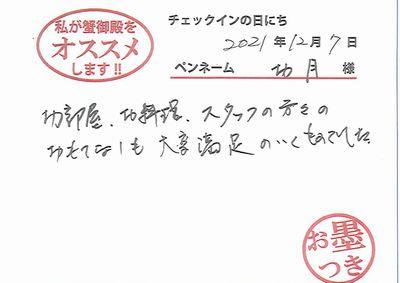 私が蟹御殿を
オススメ
します!!
チェックインの日にち
2021年12月7日
ペンネーム 功月 様
お部屋、お料理、スタッフの方々の
おもてなしも大変満足のいくものでした。
お墨
つき